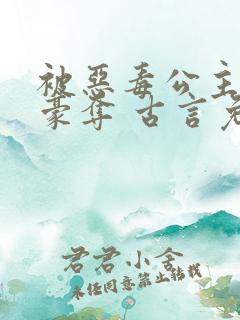 被惡毒公主
豪奪 古言
君君小舍
未经同意禁止转载